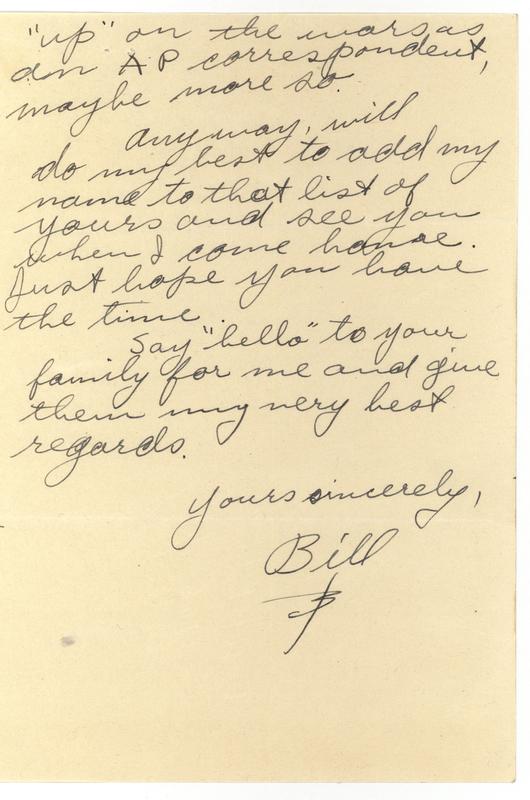 "up" on the wars as
an AP correspondent,
maybe more so.
Anyway, will
do my best to add my
name to that list of
yours and see you
when I come home.
Just hope you have
the time.
Say "hello" to your
family for me and give
them my very best
regards.
Yours sincerely,
Bill